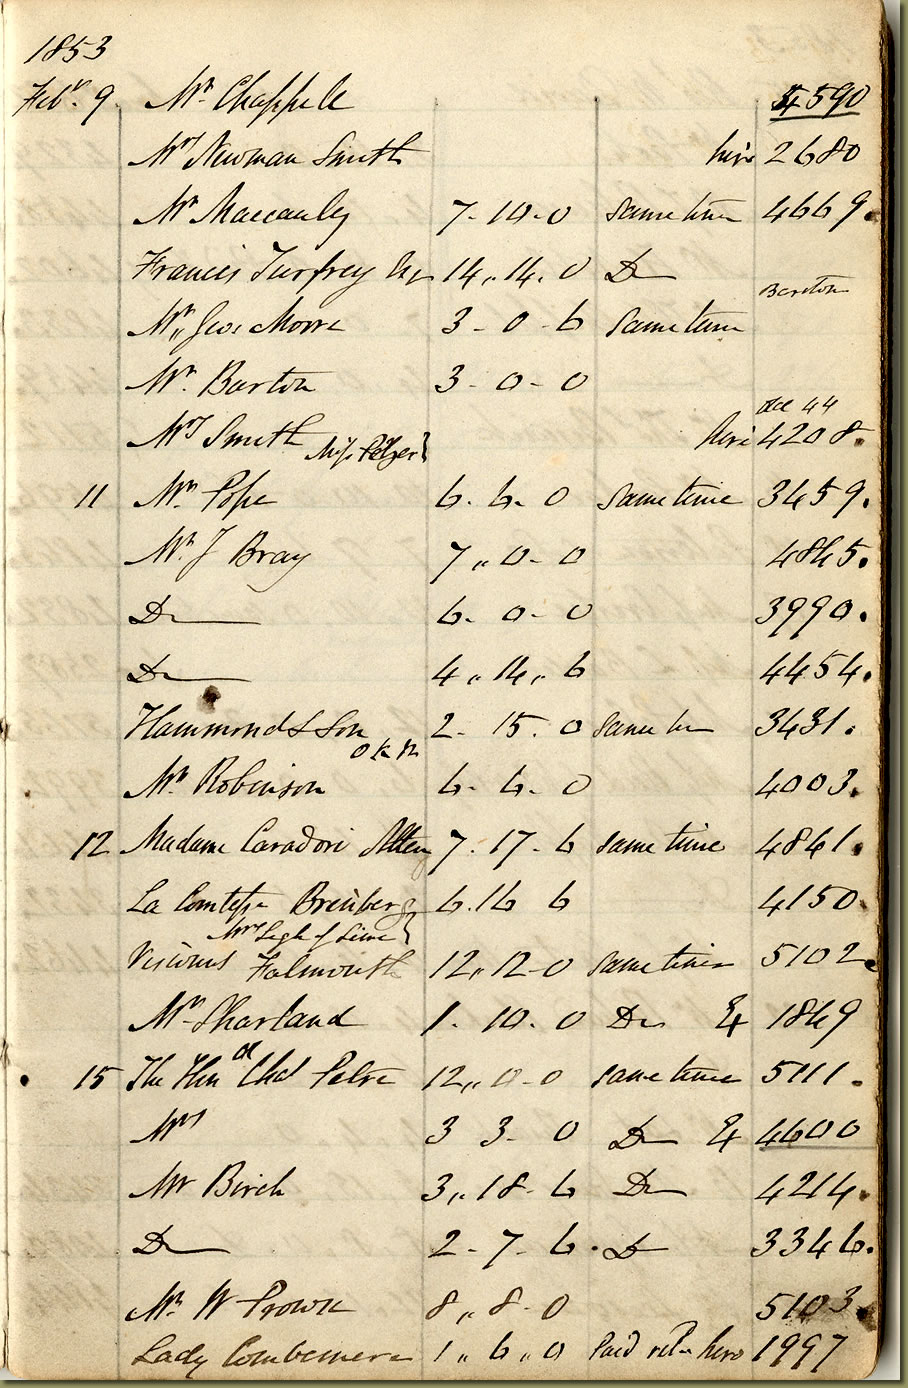 1853
Feby. 9 Mr. Chappele 4590
Mrs Newman Smith hire 2680
Mr Maccauley 7-10-0 same time 4669.
Francis Turfrey Esq 14,,14.0 Do
Barston
Mr,, Geo. Morre 3-0-6 same time
Mr. Barton 3-0-0
44
Mrs Smith hire 4208.
Miss
11 Mr. Pope 6.6.0 same time 3459.
Mr. J Bray 7,,0-0 4865.
Do 6.0-0 3990.
Do 4,,14,,6 4454.
Hammond & Son 2-15.0 same 3431.
Mr Robinson 6-6-0 4003.
12 Madame Caradori Allen 7.17-6 same time 4861.
La Comtesse 6.16 6 4150
Mrs Legh of Lime
Viscount Falmouth 12,,12-0 same time 5102.
Mr Sharland 1.10.0 Do & 1869
15 The Hon Chas Petre 12,,0-0 same time 5111.
Mrs 3 3-0 Do & 4600
Mr Birch 3,,18-6 Do 4214.
Do 2-7-6. Do 3346.
Mr. W Prowse 8,,8-0 5103.
Lady Combermere 1,,6,,0 Paid hire 1997